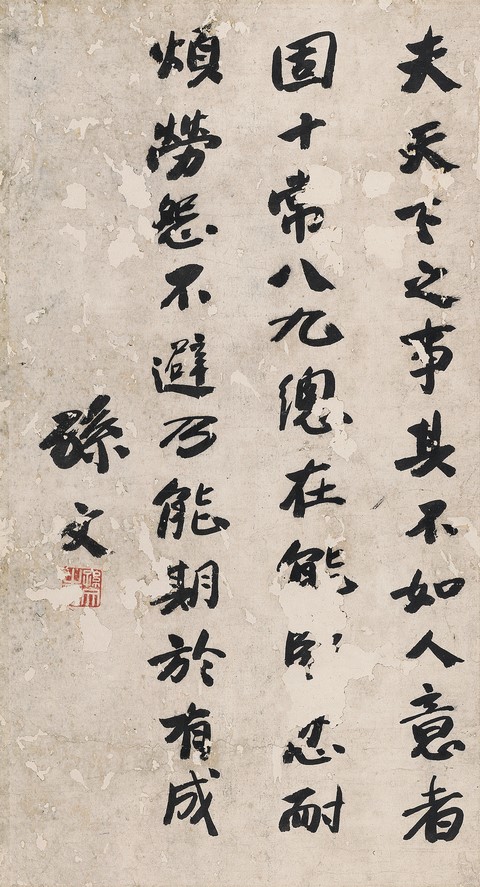 夫天下之事其不如人意者
固十常八九總在能堅忍耐
煩勞怨不避乃能期於有成
孫文